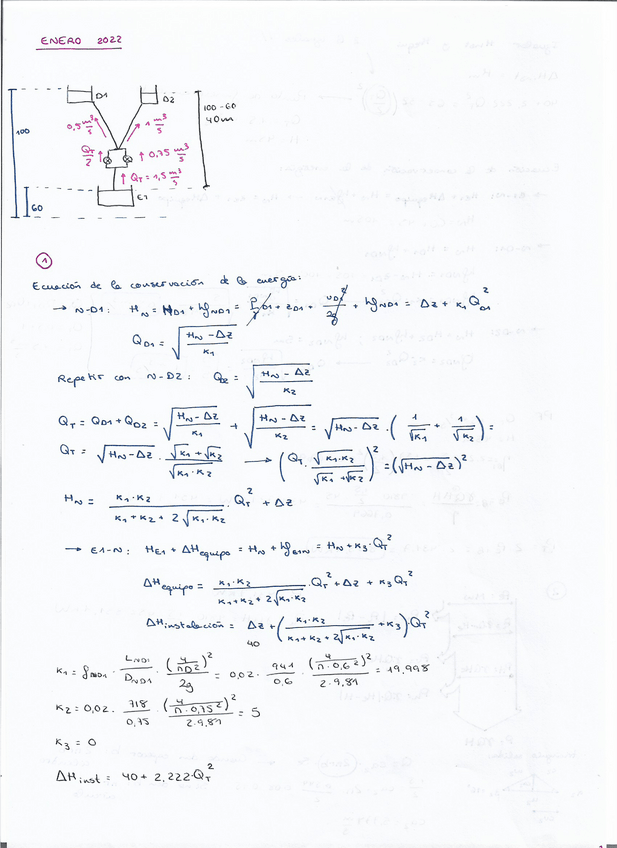 ENERO 2022
D1
D2
100-60
40m
100
0,5 m³/s
1 m³/s
QT/2
0,75 m³/s
QT = 1,5 m³/s
E1
60
1
Ecuación de la conservación de la energía:
→ N-D1: HN = HD1 + hfND1 = P/γ D1 + zD1 + vD1²/2g + hfND1 = Δz + K1 QD1²
QD1 = √((HN - Δz)/K1)
Repetir con N-D2: QD2 = √((HN - Δz)/K2)
QT = QD1 + QD2 = √((HN - Δz)/K1) + √((HN - Δz)/K2) = √(HN - Δz) · (1/√K1 + 1/√K2) =
QT = √(HN - Δz) · (√K1 + √K2)/√(K1·K2) → (QT · √(K1·K2)/(√K1 + √K2))² = (√(HN - Δz))²
HN = K1·K2/(K1 + K2 + 2√(K1·K2)) · QT² + Δz
→ E1-N: HE1 + ΔHequipo = HN + hfE1N = HN + K3·QT²
ΔHequipo = K1·K2/(K1 + K2 + 2√(K1·K2)) · QT² + Δz + K3 QT²
ΔHinstalación = Δz + (K1·K2/(K1 + K2 + 2√(K1·K2)) + K3) · QT²
40
K1 = fND1 · LND1/DND1 · (4/πD²)²/2g = 0,02 · 941/0,6 · (4/(π·0,6²))²/(2·9,81) = 19,998
K2 = 0,02 · 718/0,75 · (4/(π·0,75²))²/(2·9,81) = 5
K3 = 0
ΔHinst = 40 + 2,222·QT²